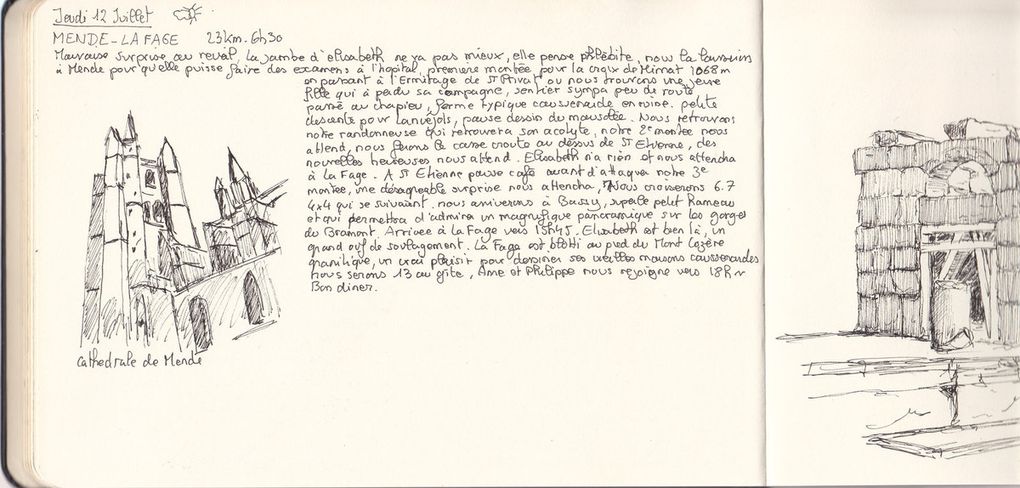 Jeudi 12 Juillet
MENDE-LA FAGE 23km. 6h30
Mauvaise surprise au reveil, la jambe d'elisabeth ne va pas mieux, elle pense phlébite, nous la laissons
à Mende pour qu'elle puisse faire des examens à l'hopital, première montée pour la croix de Mimat 1068m
en passant à l'Ermitage de St Privat ou nous trouvons une jeune
fille qui à perdu sa compagne, sentier sympa peu de route
passé au chapieu, ferme typique caussenarde en ruine. petite
descente pour Lanuéjols, pause dessin du mausolée. Nous retrouvons
notre randonneuse qui retrouvera son acolyte, notre 2e montée nous
attend, nous ferons le casse croute au dessus de St Etienne, des
nouvelles heureuses nous attend. Elisabeth n'a rien et nous attendra
à La Fage. A St Etienne pause café avant d'attaquer notre 3e
montée, une désagréable surprise nous attendra, Nous croiserons 6.7
4x4 qui se suivaient. nous arriverons à Bassy, superbe petit hameau
et qui permettra d'admirer un magnifique panoramique sur les gorges
du Bramont. Arrivée à La Fage vers 15h45. Elisabeth est bien là, un
grand ouf de soulagement. La Fage est blotti au pied du Mont Lozère
granitique, un vrai plaisir pour dessiner ses vieilles maisons caussenardes
Nous serons 13 au gite, Anne et Philippe nous rejoigne vers 18h
Bon diner.
cathédrale de Mende